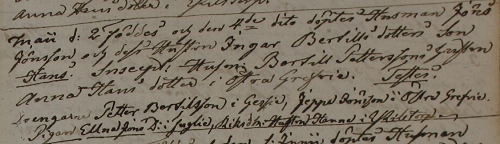 Anna Hans dotter i
Maii d: 2 föddes och den 4de dito döptes Husman Jöns
Jönsson och dess Hustru Ingar Bertills dotters Son
Hans. Suscept: Husm: Bertill Pettersons Hustru
Anna Hans dotter i Östra Grefrie. Testes:
Drengarne Petter Bertilsson i Geglie, Jeppa Jönsson i Östra Grefrie.
Pigan Ellna Jöns D: i Hustru Hanna i
döptes Husman